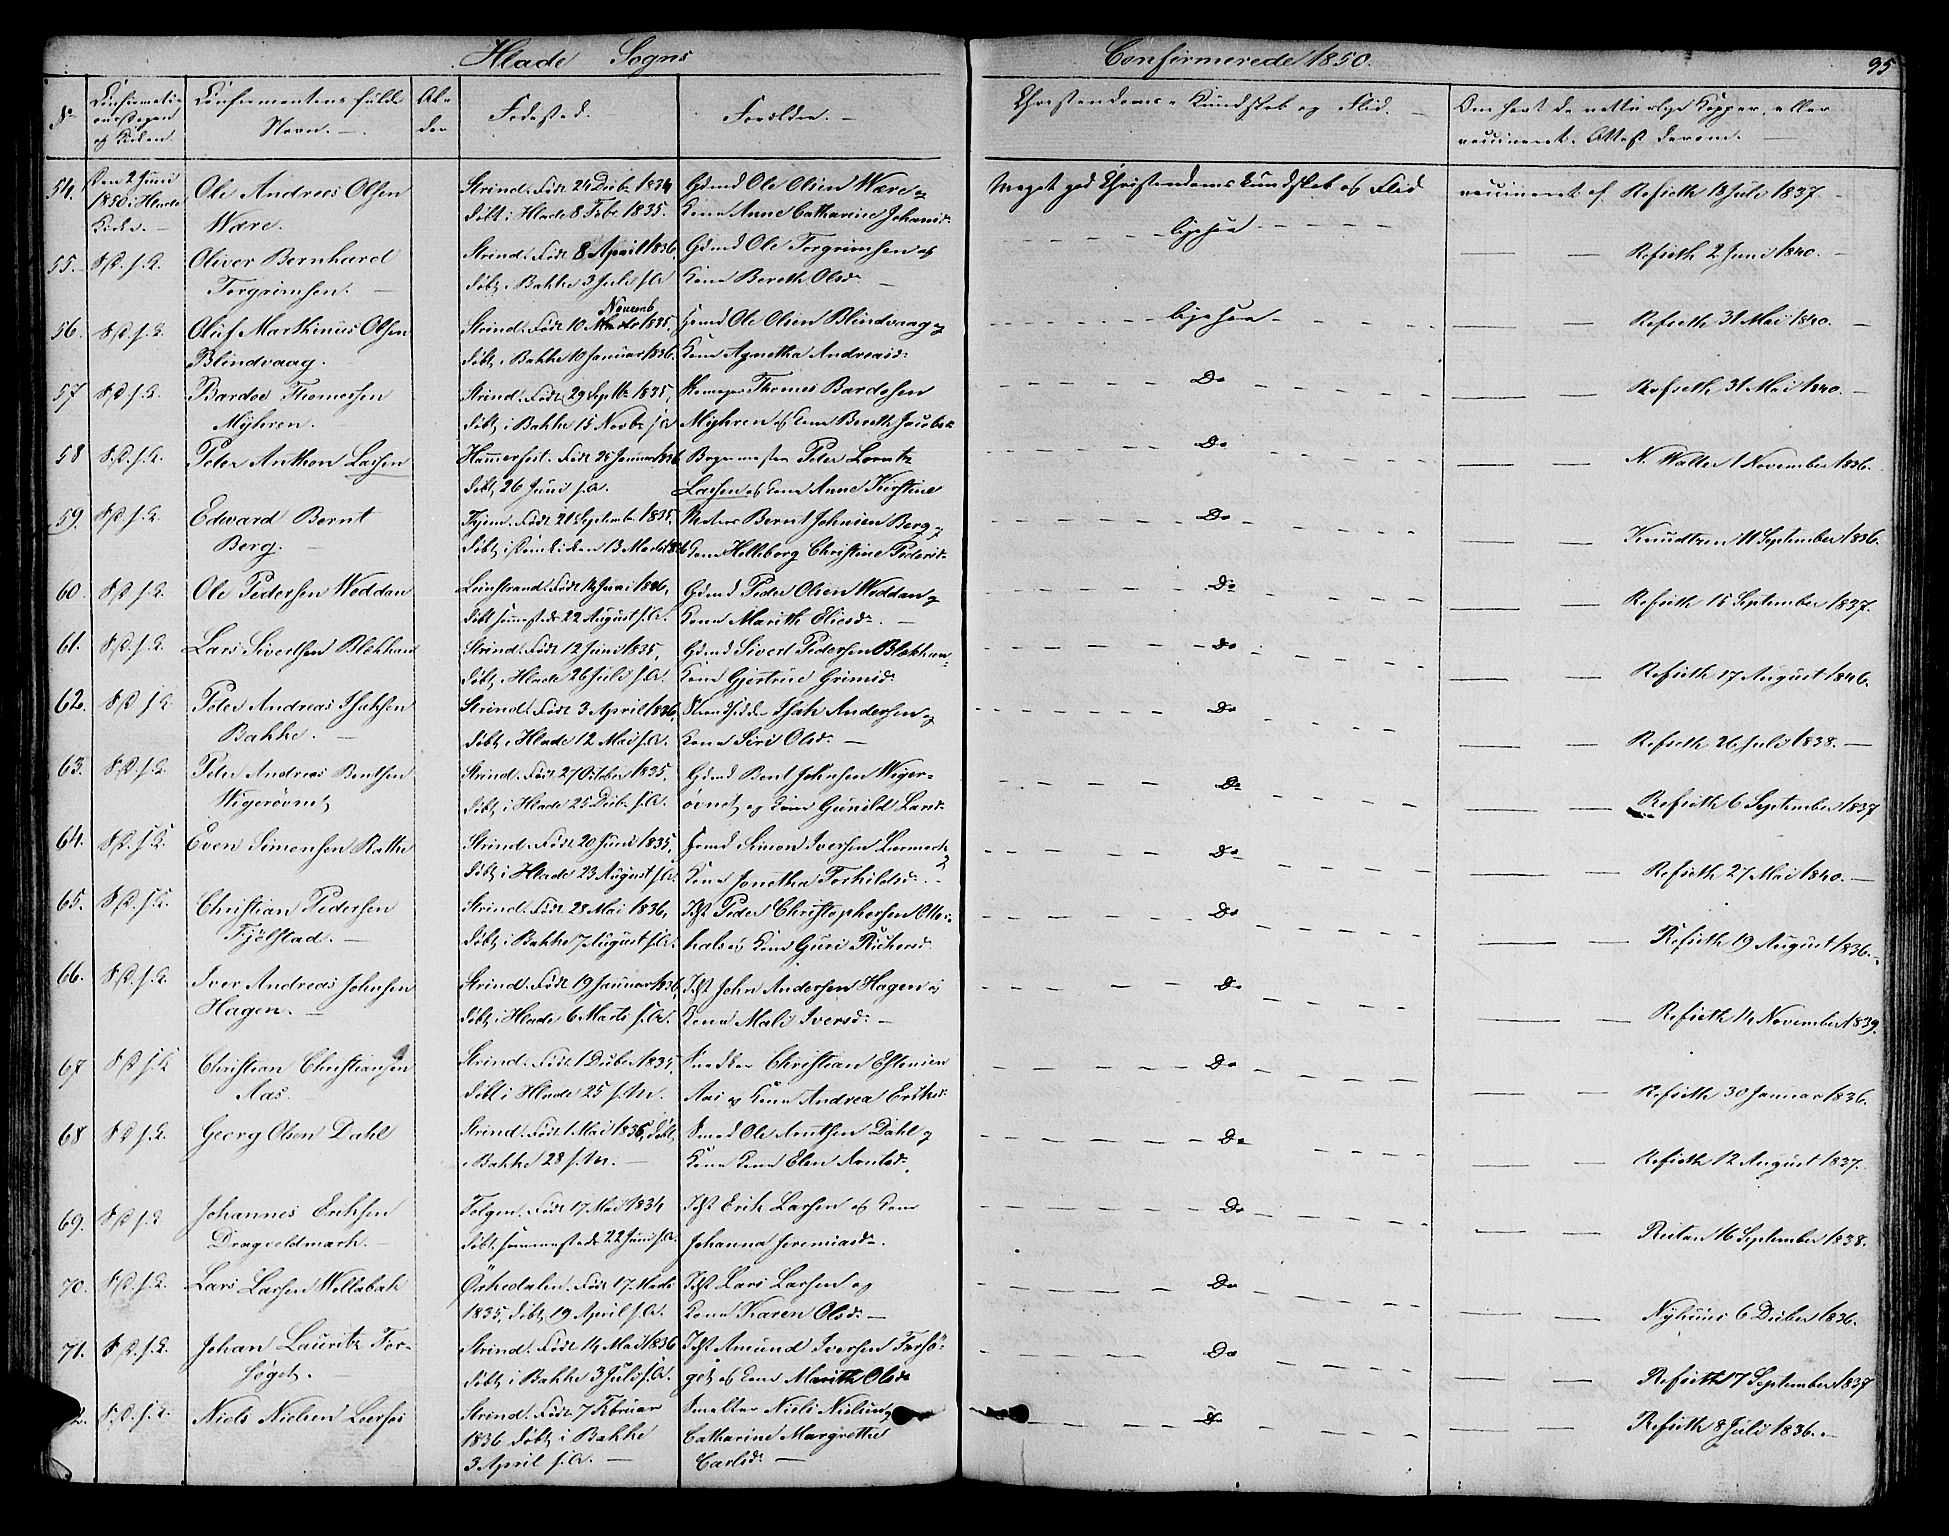 Hlade Sogns
Confirmerede 1850.
95
No
Confirmations-
og Kirken.
Confirmantens fulde
Navn.
Al-
der
Fødested.
Forældre.
Christendoms-Kundskab og Flid.
Om havt de naturlige Kopper, eller
vaccineret. Attest derom.
54.
den 2 Juni
1850 i Hlade
Kirke.
Ole Andreas Olsen
Være.
Strind. Født 24 Decbr 1834
døbt i Hlade 8 Febr. 1835.
Gdmd Ole Olsen Være og
Kone Anne Catharine Johansd.
Meget god Christendomskundskab og Flid
vaccineret af Refseth 13 Juli 1837.
55.
S. D. s. K.
Oliver Bernhard
Torgrimsen.
Strind. Født 8 April 1836,
døbt i Bakke 3 Juli s. A.
Gdmd Ole Torgrimsen og
Kone Bereth Olsd.
ligesaa
Refseth 2 Juni 1840.
56.
S. D. s. K.
Oluf Marthinus Olsen
Blindvaag.
Novemb
Strind. Født 10 Marts 1835,
døbt i Bakke 10 Januar 1836.
Hmd Ole Olsen Blindvaag og
Kone Agnetha Andreasd.
ligesaa
Refseth 31 Mai 1840.
57
S. D. s. K.
Bardoe Thomesen
Myhren.
Strind. Født 29 Septbr 1835,
døbt i Bakke 15 Novbr s. A.
Thomes Bardosen
Myhren og Kone Bereth Jacobsd.
Do
Refseth 31 Mai 1840.
58
S. D. s. K.
Peter Anthon Lassen
Hammerfest. Født 25 Januar 1836
døbt 26 Juni s. A.
Peter Lorentz
Lassen og Kone Anne Kirstine
Do
N. Walter 1 November 1836.
59.
S. D. s. K.
Edvard Bernt
Berg.
Født 21 September 1835,
døbt i Domkirken 13 Marts 1836
Bernt Johnsen Berg og
Kone Helleborg Christine Pedersd.
Do
Knudtzen 11 September 1836.
60.
S. D. s. K.
Ole Pedersen Weddan
Leinstrand. Født 14 Juni 1836,
døbt sammesteds 22 August s. A.
Gdmd Peder Olsen Weddan og
Kone Marith Eliesd.
Do
Refseth 15 September 1837.
61.
S. D. s. K.
Lars Sivertsen Blækkan
Strind. Født 12 Juni 1835,
døbt i Hlade 26 Juli s. A.
Gdmd Sivert Pedersen Blækkan
Kone Gjertrue Grimsd.
Do
Refseth 17 August 1846.
62.
S. D. s. K.
Peter Andreas Isaksen
Bakke.
Strind. Født 3 April 1836,
døbt i Hlade 12 Mai s. A.
Strandsidder Isak Andersen og
Kone Siri Olsd.
Do
Refseth 26 Juli 1838.
63.
S. D. s. K.
Peter Andreas Bentsen
Wigerøvnet
Strind. Født 27 October 1835.
døbt i Hlade 25 Decbr s. A.
Gdmd Bent Johnsen Wiger-
øvnet og Kone Gunild Larsd.
Do
Refseth 6 September 1837
64.
S. D. s. K.
Even Simonsen Rathe
Strind. Født 20 Juni 1835,
døbt i Hlade 23 August s. A.
Hmd Simon Iversen
Kone Jonetha Torkildsd.
Do
Refseth 27 Mai 1840.
65.
S. D. s. K.
Christian Pedersen
Fjølstad.
Strind. Født 28 Mai 1836,
døbt i Bakke 7 August s. A.
Peder Christophersen
og Kone Guri Richersd.
Do
Refseth 19 August 1836.
66.
S. D. s. K.
Iver Andreas Johnsen
Hagen.
Strind. Født 19 Januar 1836,
døbt i Hlade 6 Marts s. A.
John Andersen Hagen og
Kone Mali Iversd.
Do
Refseth 14 November 1839.
67
S. D. s. K
Christian Christiansen
Aas.
Strind. Født 1 Decbr 1835,
døbt i Hlade 25 s. M.
Snedker Christian Estensen
Aas og Kone Andrea Eriksd.
Do
Refseth 30 Januar 1836.
68
S. D. s. K.
Georg Olsen Dahl
Strind. Født 1 Mai 1836, døbt
i Bakke 28 s. M.
Smed Ole Arntsen Dahl og
Kone Kone Elen Arntsd.
Do
Refseth 12 August 1837.
69.
S. D. s. K
Johannes Eriksen
Dragvoldmark.
Tolgen. Født 17 Mai 1834
døbt sammesteds 22 Juni s. A.
Erik Larsen og Kone
Johanna Jeremiasd.
Do
16 September 1838.
70.
S. D. s. K.
Lars Larsen Willabak
Orkedalen. Født 17. Marts
1835, døbt 19 April s. A.
Lars Larsen og
Kone Karen Olsd.
Do
Nyhuus 6 Decbr 1836.
71.
S. D. s. K.
Johan Lauritz For-
søget.
Strind. Født 14 Mai 1836
døbt i Bakke 3 Juli s. A.
Amund Iversen Forsø-
get og Kone Marith Olsd.
Do
Refseth 17 September 1837
2.
S. D. s. K.
Niels Nielsen Leersøe
Strind. Født 7 Februar
1836 døbt i Bakke
3 April s. A.
Smelter Niels Nielsen og
Catharine Margrethe
Carlsd.
Do
Refseth 8 Juli 1836.